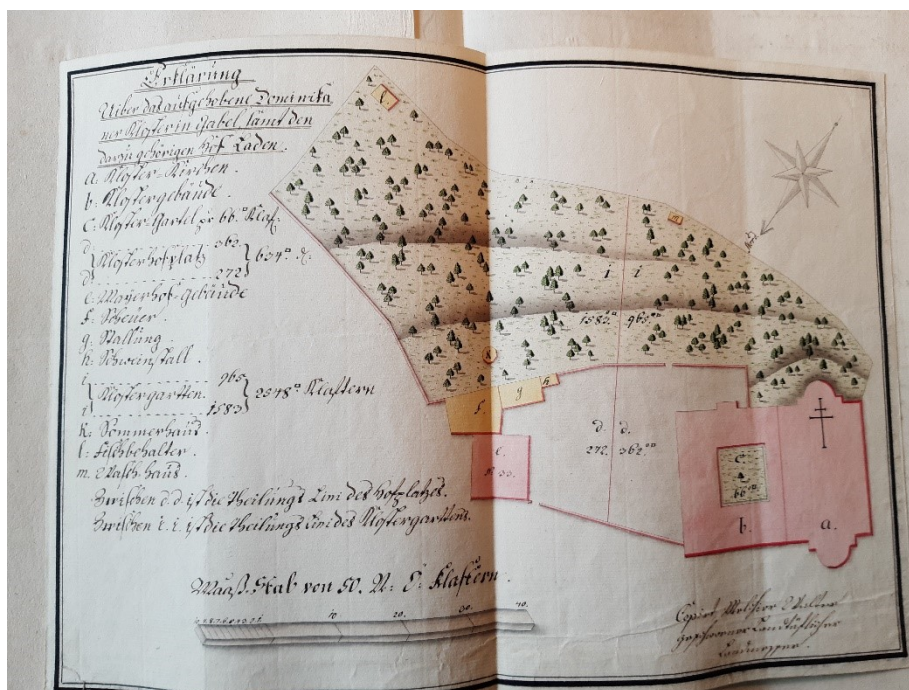 Erklärung
Über das aufgehobene Dominika
ner Kloster in Gabel, samt den
darzu gehörigen Hof Laden.
a. Kloster-Kirchen.
b. Klostergebäude.
c. Kloster-Gartel pr 66.° Klaf.
d. 362
Klosterhofplatz 634°
d. 272
e. Mayerhof-Gebäude
f. Scheuer.
g. Stallung
h. Schweinstall.
i 965
Klostergartten. 2548° Klaftern
i 1583
k. Sommerhaus.
l. Fischbehalter.
m. Wasch-haus.
Zwischen d. d. ist die Theilungs Lini des Hofplatzes.
Zwischen i. i. ist die Theilungs Lini des Klostergarttens.
Maaß-Stab von 50. N: Ö: Klaftern.
10. 20. 30. 40.
l
m
Nord
i i
1583.° 965.°
k
f. g. h
e.
d. d.
272. 362.°
c
66.°
b.
a.
Copirt Melchior
geschworner Landtäflicher
Landmesser.